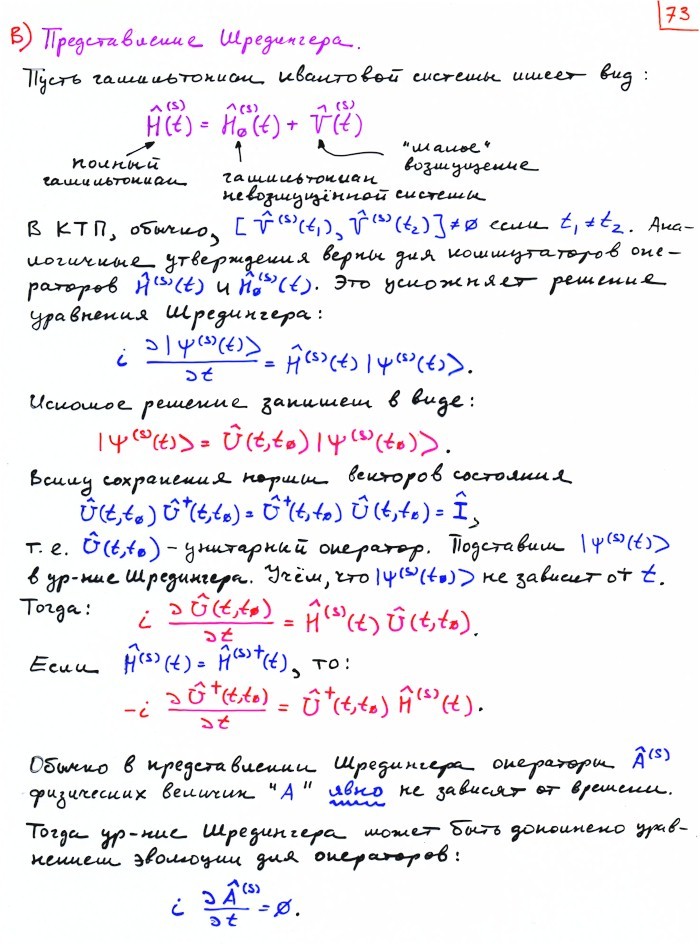 73
В) Представление Шредингера.
Пусть гамильтониан квантовой системы имеет вид:
Ĥ⁽ˢ⁾(t) = Ĥ₀⁽ˢ⁾(t) + V̂⁽ˢ⁾(t)
полный гамильтониан
гамильтониан невозмущённой системы
"малое" возмущение
В КТП, обычно, [V̂⁽ˢ⁾(t₁), V̂⁽ˢ⁾(t₂)] ≠ 0 если t₁ ≠ t₂. Ана-
логичные утверждения верны для коммутаторов опе-
раторов Ĥ⁽ˢ⁾(t) и Ĥ₀⁽ˢ⁾(t). Это усложняет решение
уравнения Шредингера:
i ∂|Ψ⁽ˢ⁾(t)>/∂t = Ĥ⁽ˢ⁾(t) |Ψ⁽ˢ⁾(t)>.
Искомое решение запишем в виде:
|Ψ⁽ˢ⁾(t)> = Û(t,t₀) |Ψ⁽ˢ⁾(t₀)>.
Всилу сохранения нормы векторов состояния
Û(t,t₀) Û⁺(t,t₀) = Û⁺(t,t₀) Û(t,t₀) = Î,
т.е. Û(t,t₀) – унитарный оператор. Подставим |Ψ⁽ˢ⁾(t)>
в ур-ние Шредингера. Учём, что |Ψ⁽ˢ⁾(t₀)> не зависит от t.
Тогда: i ∂Û(t,t₀)/∂t = Ĥ⁽ˢ⁾(t) Û(t,t₀).
Если Ĥ⁽ˢ⁾(t) = Ĥ⁽ˢ⁾⁺(t), то:
-i ∂Û⁺(t,t₀)/∂t = Û⁺(t,t₀) Ĥ⁽ˢ⁾(t).
Обычно в представлении Шредингера операторы Â⁽ˢ⁾
физических величин "А" явно не зависят от времени.
Тогда ур-ние Шредингера может быть дополнено урав-
нением эволюции для операторов:
i ∂Â⁽ˢ⁾/∂t = 0.